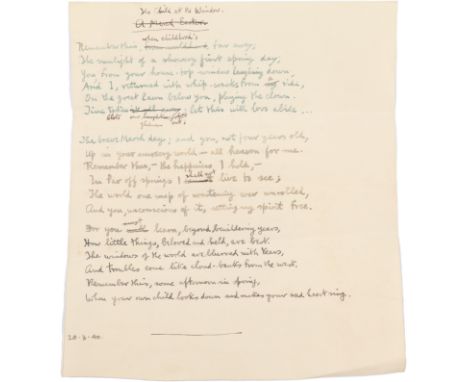 The Child at the Window.
A Mend Easter.
when childhood's
Remember this, far away;
The sunlight of a showery first spring day;
You from your house-top window laughing down,
And I, returned with whip-cracks from a ride,
On the great lawn below you, playing the clown.
Time blots our laughter out; let this with love abide ...
The brave March day; and you, not four years old,
Up in your nursery world – all heaven for me.
Remember this, – the happiness I hold, –
In far off springs I shall not live to see;
The world one map of wintering war unrolled,
And you, unconscious of it, setting my spirit free.
For you must learn, beyond bewildering years,
How little things, beloved and held, are best.
The windows of the world are blurred with tears,
And troubles come like cloud-banks from the west.
Remember this, some afternoon in spring,
When your own child looks down and makes your sad heart sing.
28-3-40